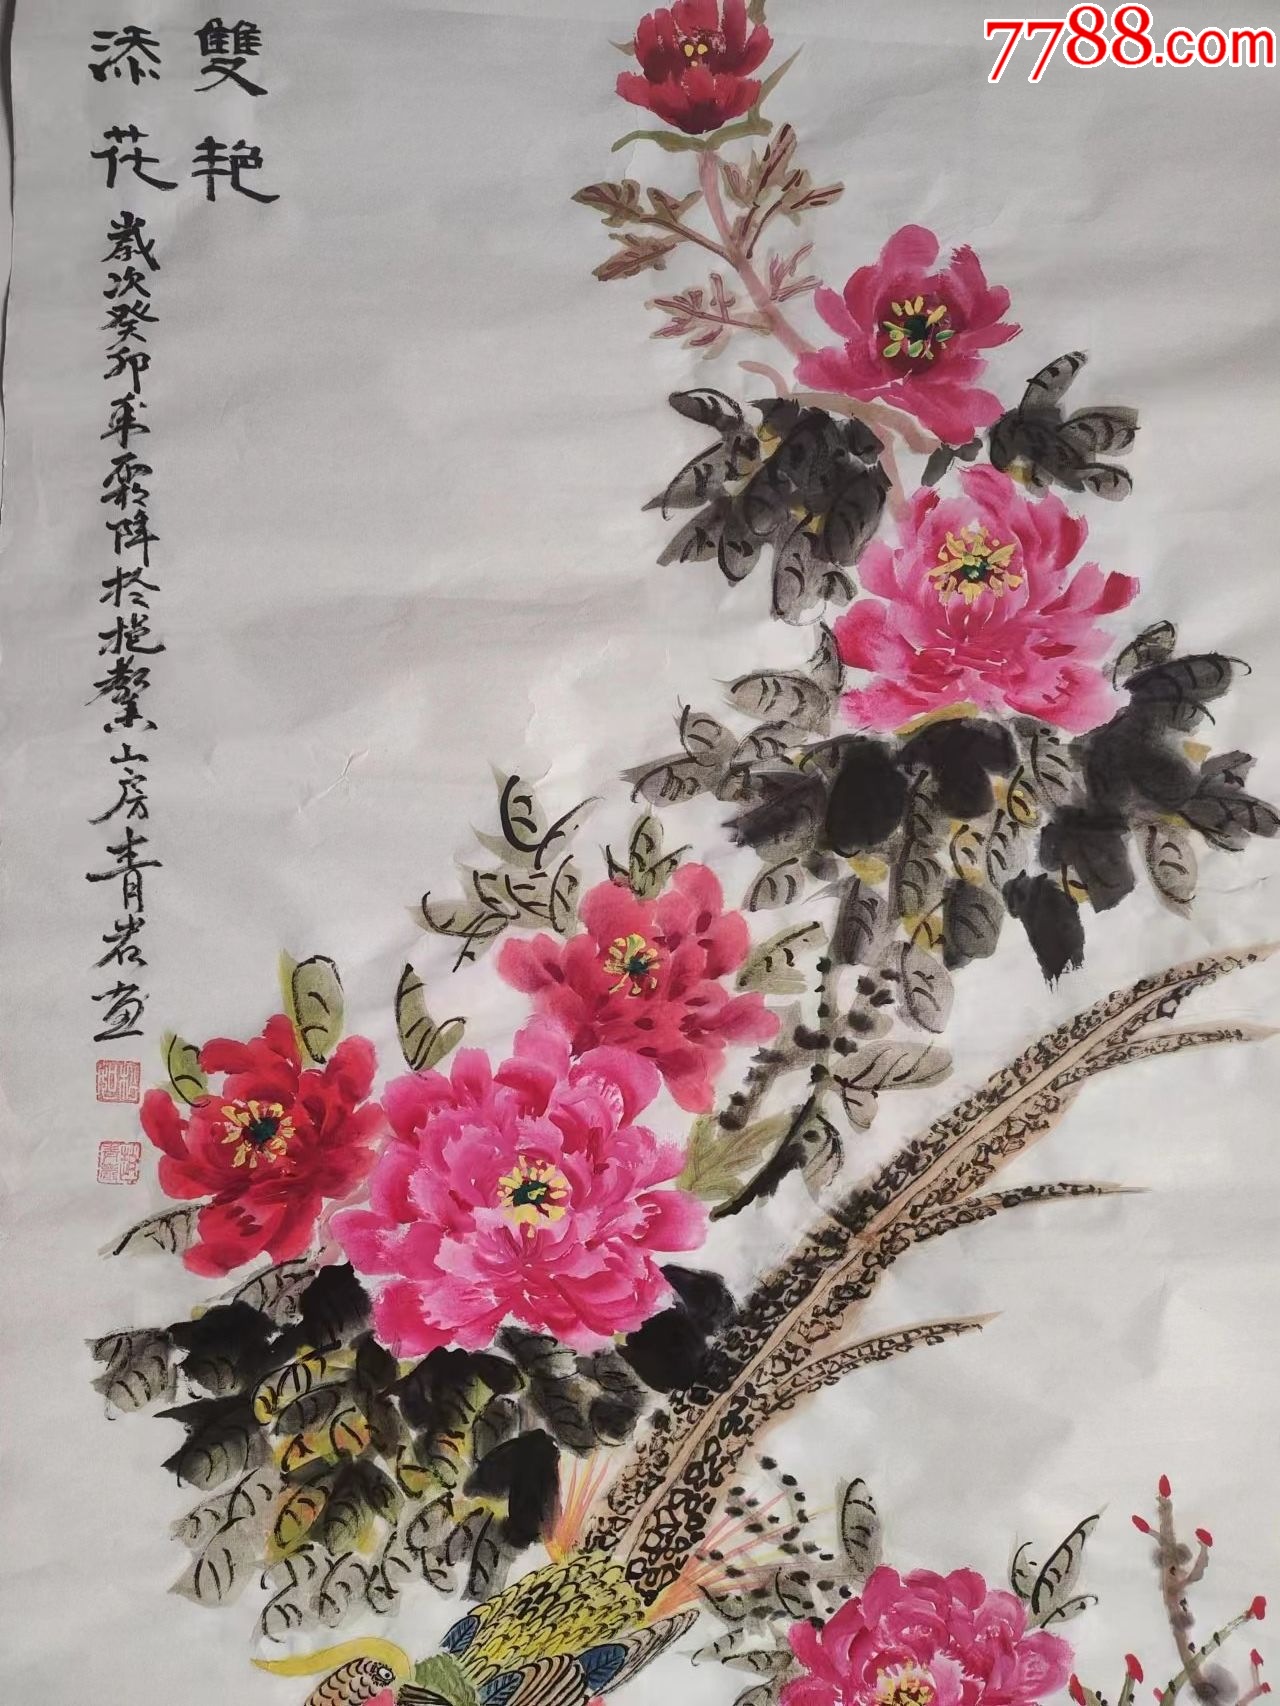 7788.com
雙艳
添花
歲次癸卯年霜降於挹翠山房青岩画